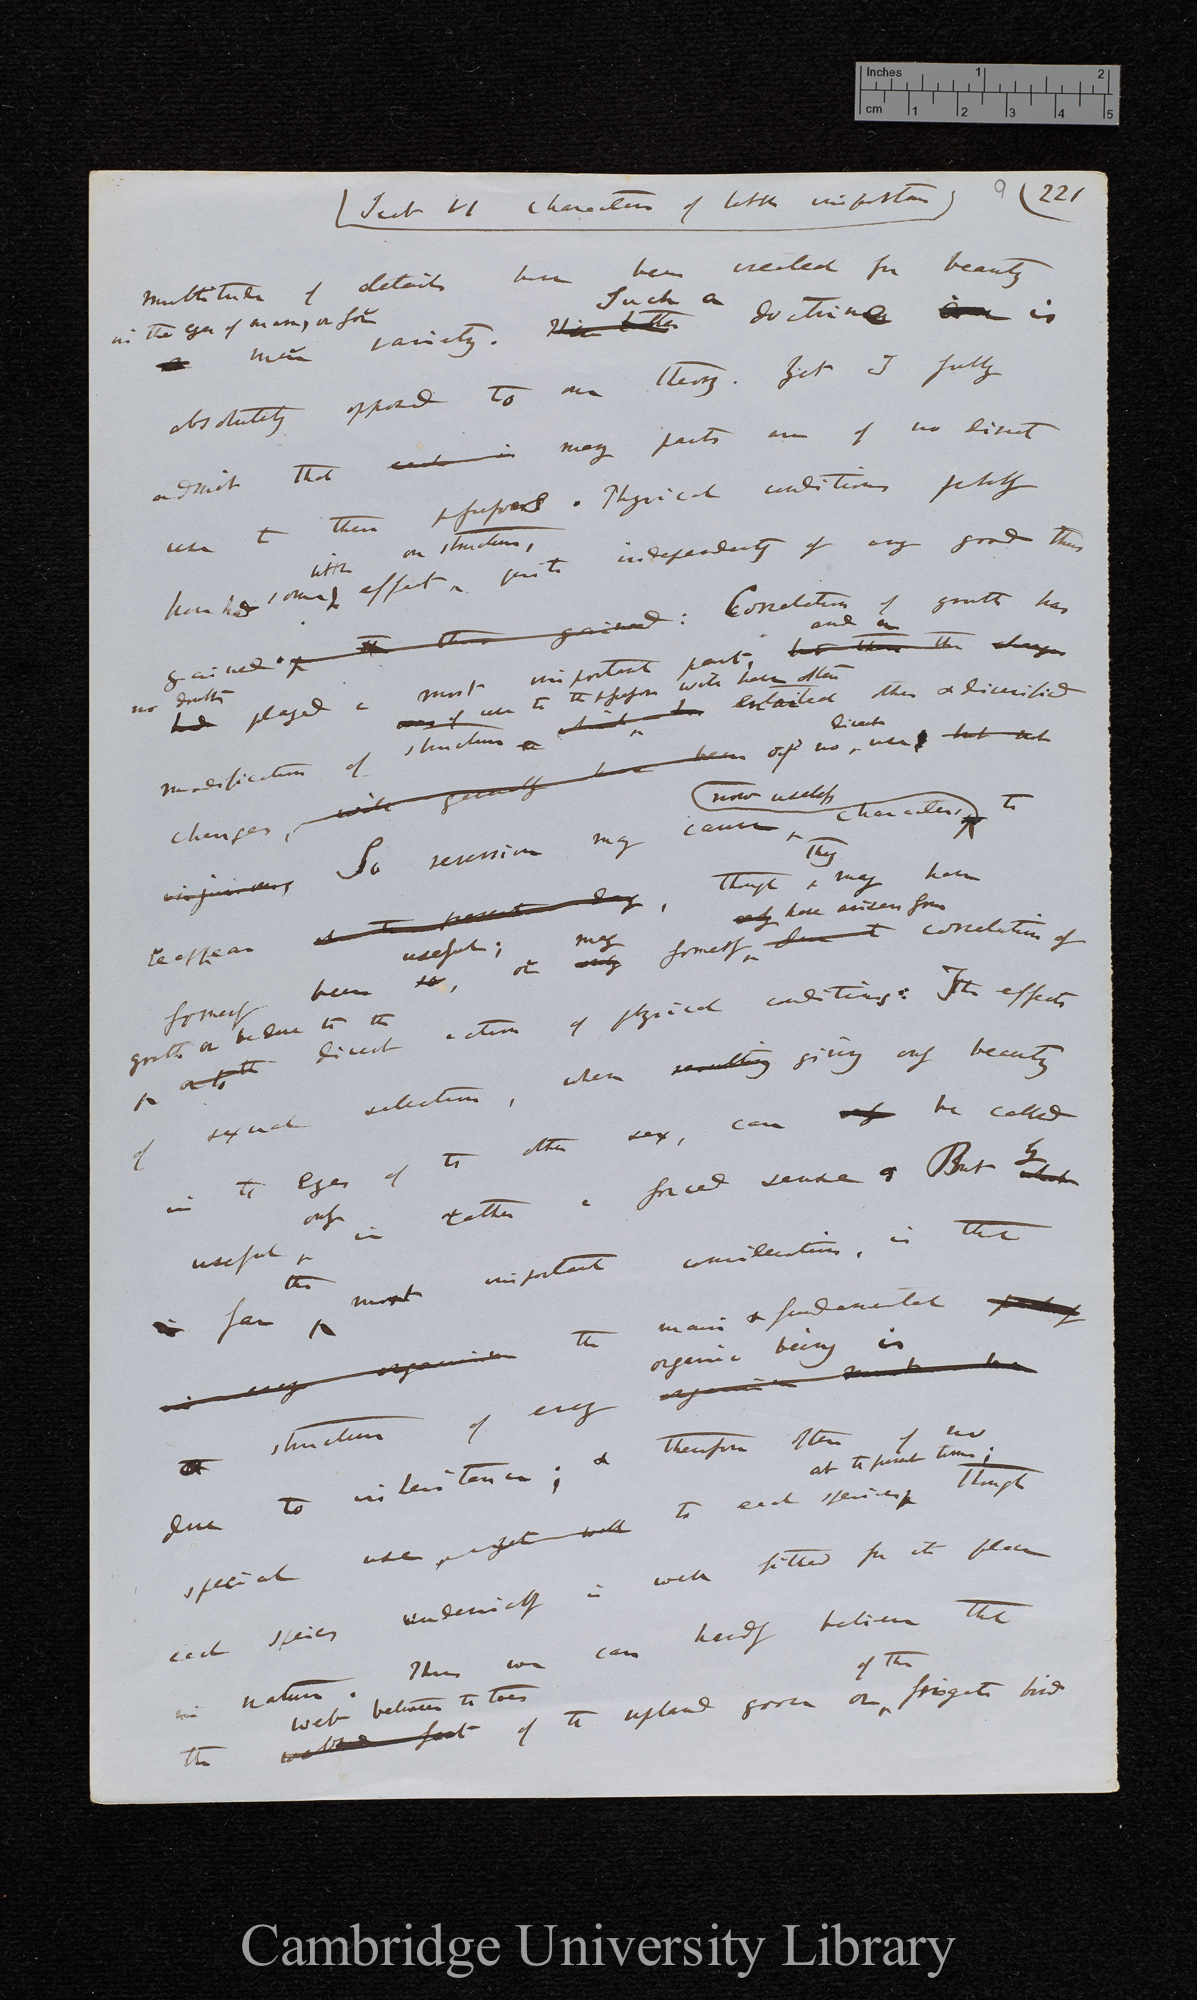 Inches 1 2
cm 1 2 3 4 5
(Sect VI Characters of little importance) 9 (221
multitude of details have been created for beauty
in the eyes of man, or for
mere variety. Such a doctrine is
absolutely opposed to our theory. Yet I fully
admit that many parts are of no direct
use to their possessors. Physical conditions probably
little on structure,
have had some effect, quite independently of any good thus
gained: Correlation of growth has
and a
no doubt played a most important part, the
use to the possessor will have often
modification of structure entailed other & diversified
direct
changes, of no use
now useless
So reversion may cause characters to
They
reappear, though may have
useful; may have arisen from
formerly been or formerly correlation of
growth or be due to the
direct action of physical conditions: The effects
of sexual selection, when giving only beauty
in the eyes of the other sex, can be called
useful only in rather a forced sense. But by
far the most important consideration, is that
the main & fundamental
organic being is
structure of every
due to inheritance; & therefore often of no
at the present time;
special use to each species, though
each species undeniably is well fitted for its place
in nature. Thus we can hardly believe that
web between the toes of the
the of the upland goose or frigate bird
Cambridge University Library